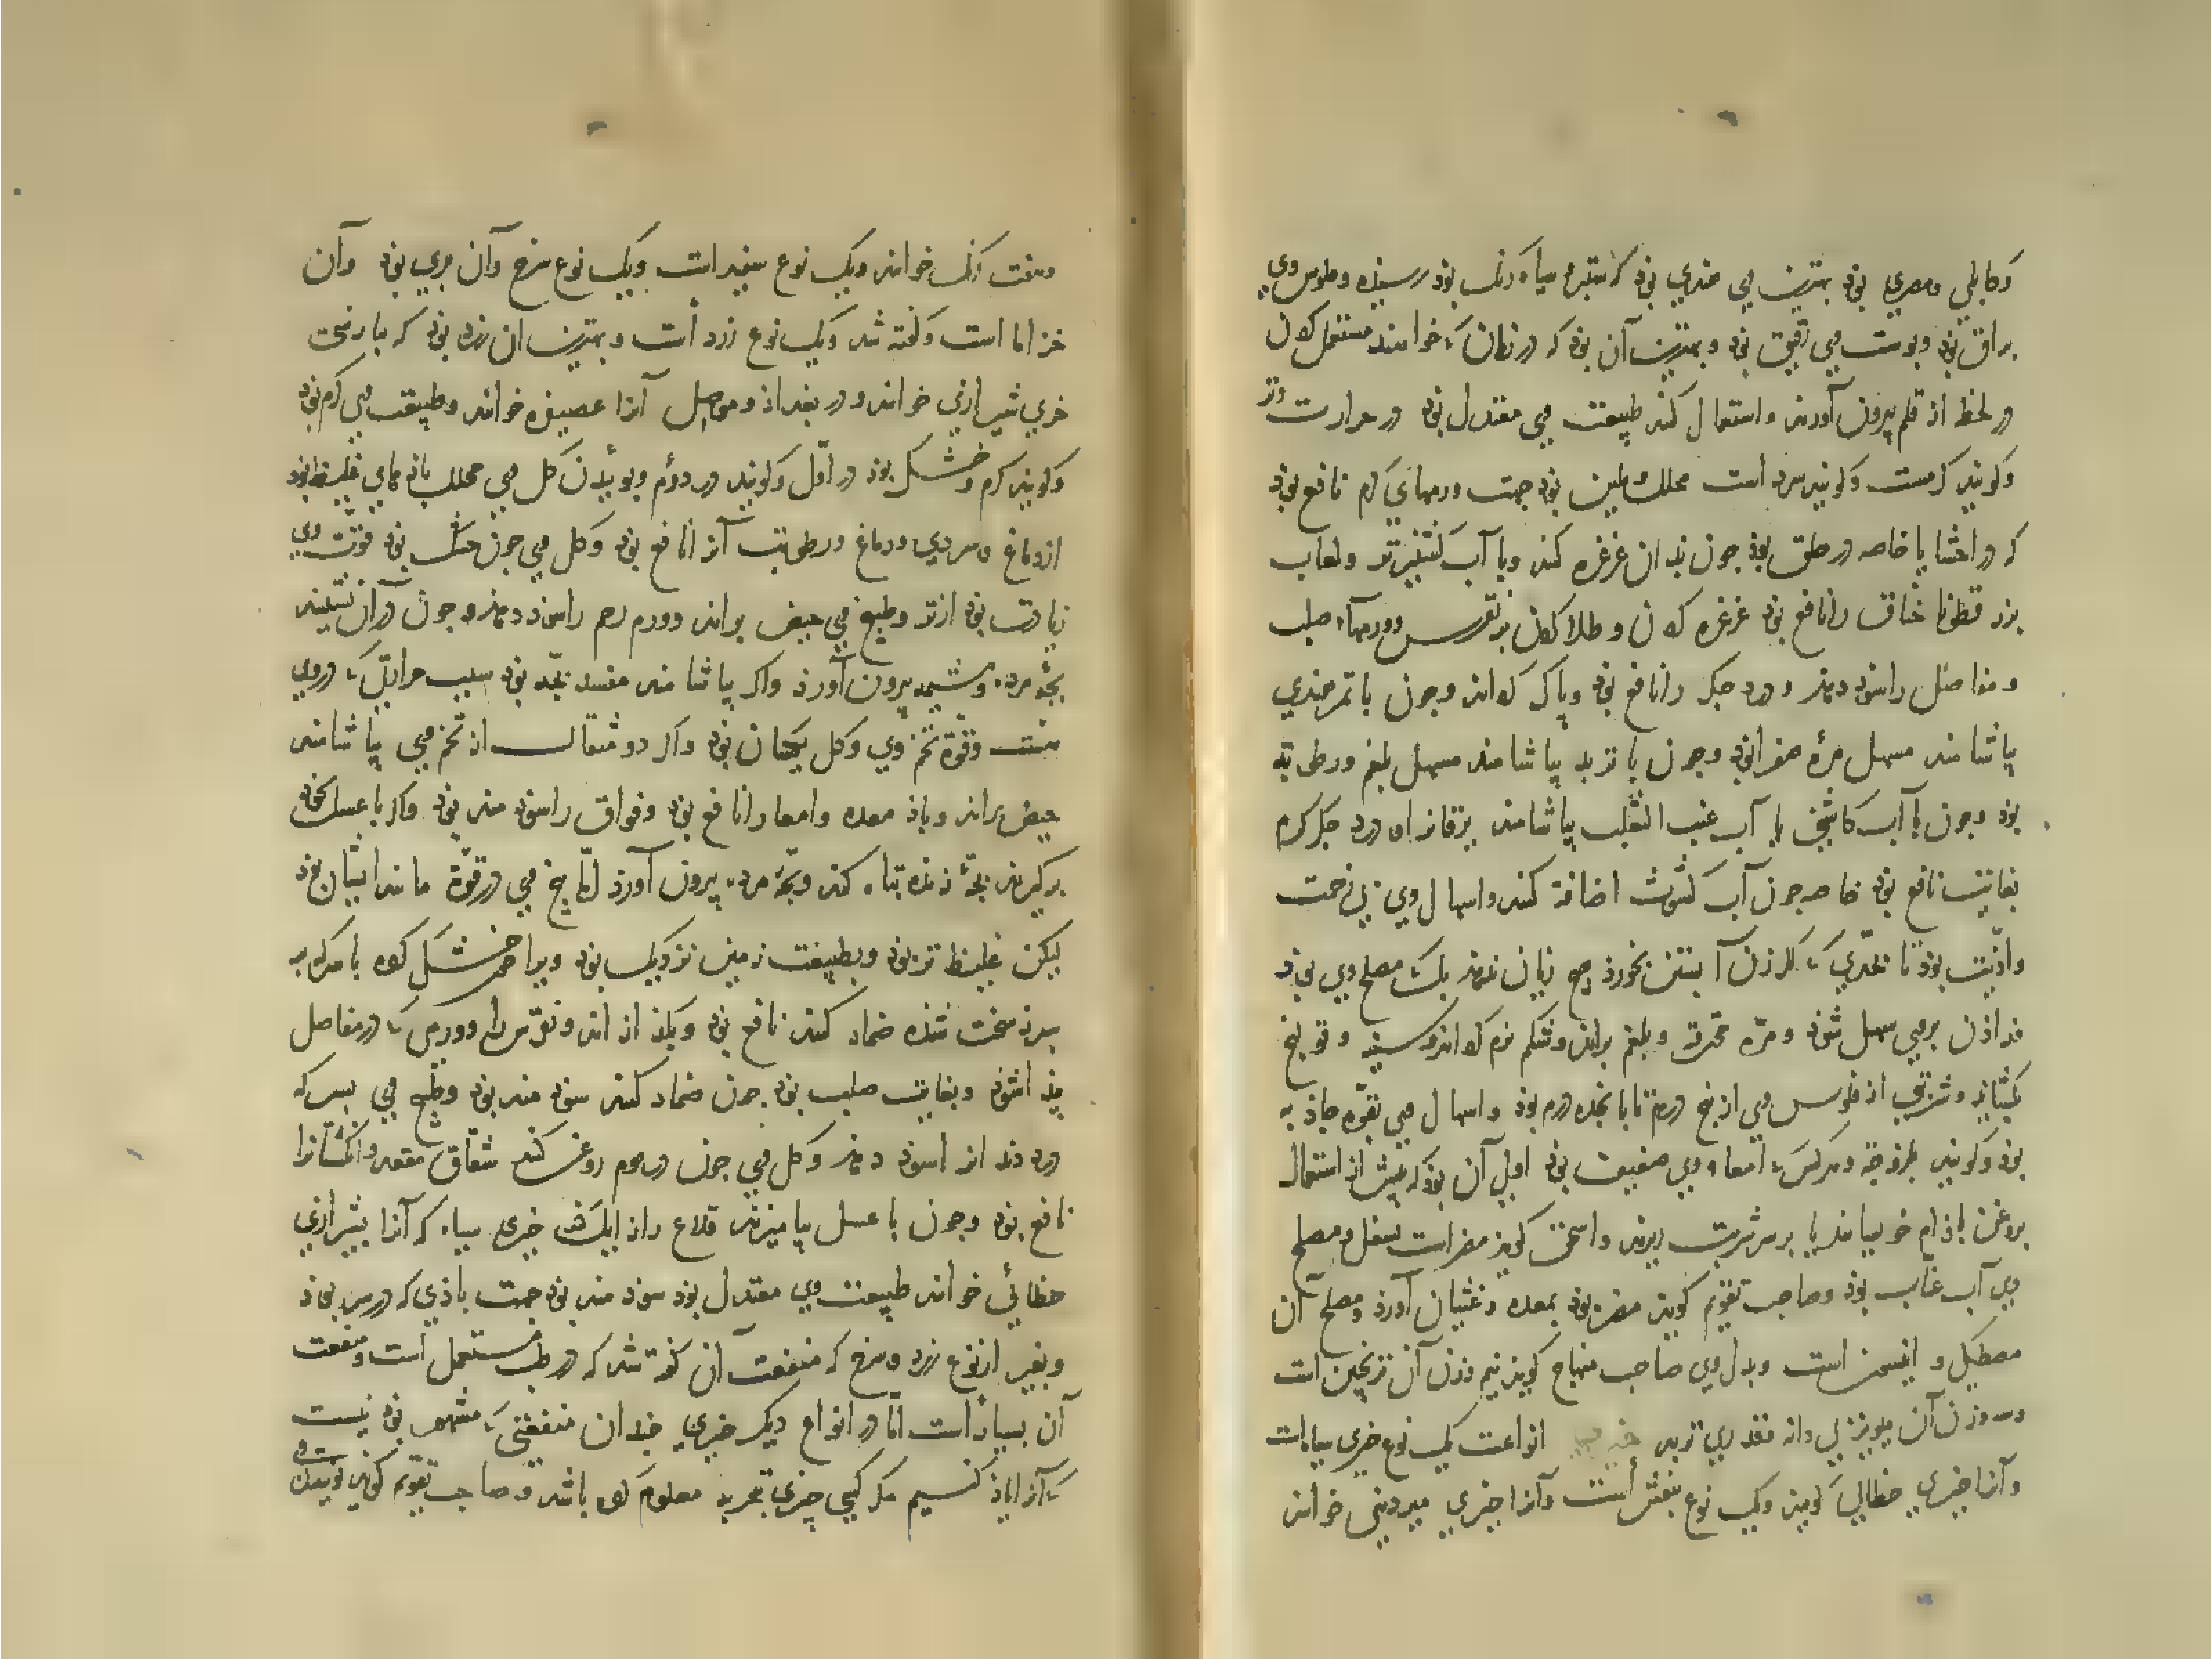 و کابلی و مصری بوذ بهترین وی هندی بوذ که ستبر و سیاه رنگ بوذ رسیده و فلوس وی
براق بوذ و پوست وی رقیق بوذ و بهترین آن بوذ که در زمان که خواهند مستعمل کردن
در لحظه از قلم بیرون آورند و استعمال کنند طبیعت وی معتدل بوذ در حرارت و تری
و گویند گرمست و گویند سرد است محلل و ملین بوذ جهت ورمهای گرم نافع بوذ
که در احشا یا خاصه در حلق بوذ چون بدان غرغره کنند و با آب گشنیز تر و لعاب
بزر قطونا خناق را نافع بوذ غرغره کردن و طلا کردن بر نقرس و ورمهاء صلب
و مفاصل را سوذ دهد و درد جگر را نافع بوذ و پاک گرداند و چون با تمر هندی
بیاشامند مسهل مرّه صفرا بوذ و چون با تربد بیاشامند مسهل بلغم و رطوبت
بوذ و چون با آب کاسنی یا آب عنب الثعلب بیاشامند یرقان را و درد جگر گرم
بغایت نافع بوذ خاصه چون آب کشوث اضافه کنند و اسهال وی بی زحمت
و اذیت بوذ تا بحدّی که اگر زن آبستن بخورد هیچ زیان ندهد بلک مصلح وی بوذ
و مرّه محرقه و بلغم براند و شکم نرم گرداند و سینه و قولنج
بگشاید و شربتی از فلوس وی از پنج درم تا پانزده درم بوذ و اسهال وی بقوّه جاذبه
بوذ و گویند بلزوجة و هر کس که امعاء وی ضعیف بوذ اولی آن بوذ که پیش از استعمال
بروغن باذام خوبیانند یا بر سر شربت ریزند و اسحق گوید مضر است بسفل و مصلح
وی آب عناب بوذ و صاحب تقویم گوید مضر بوذ بمعده و غثیان آورد و مصلح آن
مصطکی و انیسون است و بدل وی صاحب منهاج گوید نیم وزن آن ترنجبین است
و سه وزن آن مویز بی دانه و قدری تربد خیری انواعست یک نوع خیری سیاه است
و آنرا خیری خطائی گویند و یک نوع بنفش است و آنرا خیری میردینی خوانند
و هفت رنگ خوانند و یک نوع سفید است و یک نوع سرخ و آن بری بوذ و آن
خزاما است و گفته شد و یک نوع زرد است و بهترین آن زرد بوذ که بپارسی
خری شیرازی خوانند و در بغداذ و موصل آنرا عصیفره خوانند و طبیعت وی گرم بوذ
و گویند گرم و خشک بوذ در اوّل و گویند در دوّم و بوئیدن گل وی محلل باذهای غلیظ بوذ
از دماغ و سردی دماغ و رطوبت آنرا نافع بوذ و گل وی چون خشک بوذ قوّت وی
زیادت بوذ از تر و طبیخ وی حیض براند و ورم رحم را سوذ دهد و چون در آن نشینند
بچّه مرده و مشیمه بیرون آورذ و اگر بیاشامند مفسد بچّه بوذ بسبب مرارتی که در وی
هست و قوّة تخم وی و گل یکسان بوذ و اگر دو مثقال از تخم وی بیاشامند
حیض براند و باذ معده و امعا را نافع بوذ و فواق را سوذ مند بوذ و اگر با عسل بخوذ
برگیرند بچّه زنده تباه کند و بچّه مرده بیرون آورد امّا بیخ وی در قوّة مانند ایشان بوذ
لیکن غلیظ تر بوذ و بطبیعت زمین نزدیک بوذ و ویرا چون خشک کرده با سرکه بر
سپرز سخت شده ضماد کنند نافع بوذ و بگذازاند و نقرس را و ورمی که در مفاصل
پیذا شوذ و بغایت صلب بوذ چون ضماد کنند سوذ مند بوذ و طبخ وی بسرکه
درد دندانرا سوذ دهد و گل وی چون در موم روغن کنند شقاق مقعد و انگشتانرا
نافع بوذ و چون با عسل بیامیزند قلاع را زایل کند خیری سیاه که آنرا بشیرازی
خطائی خوانند طبیعت وی معتدل بوذ سوذ مند بوذ جهت باذی که در سر بوذ
و بغیر از نوع زرد و سرخ که منفعت آن گفته شد که در طب مستعمل است و منفعت
آن بسیار است امّا در انواع دیگر خیری چندان منفعتی که مشهور بوذ نیست
که آنرا یاذ کنیم مگر کسی چیزی بتجربه معلوم کرده باشد و صاحب تقویم گوید بوئیدن